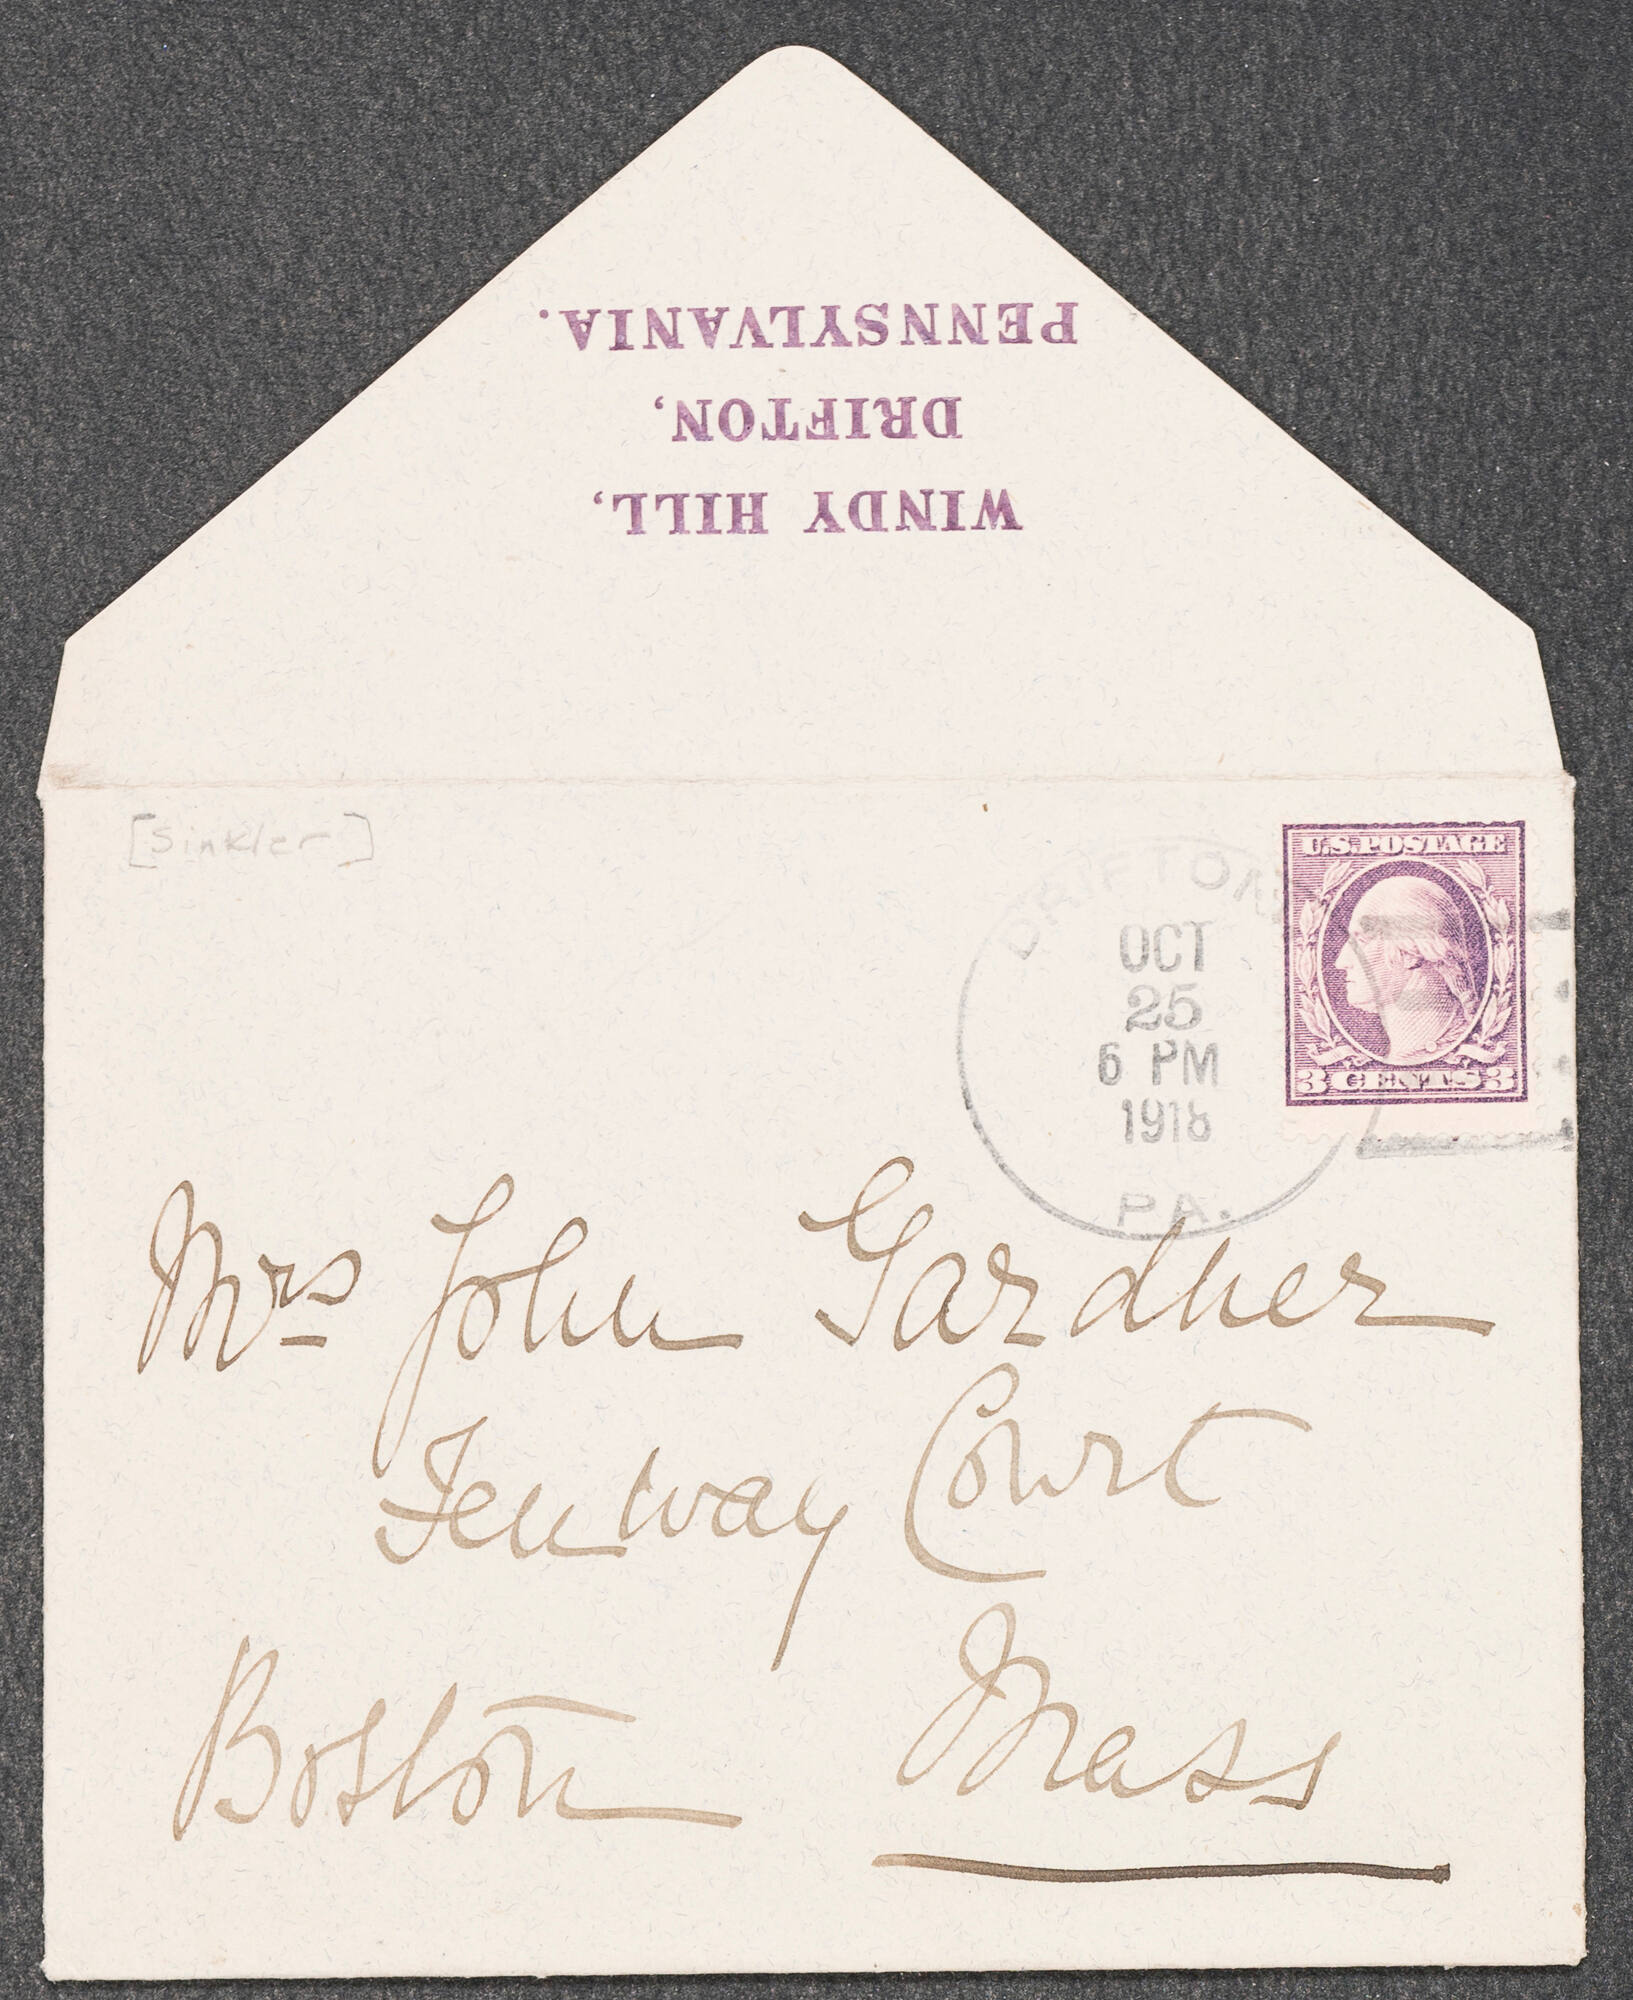 WINDY HILL,
DRIFTON,
PENNSYLVANIA.
[Sinkler]
DRIFTON
OCT
25
6 PM
1918
PA.
U.S. POSTAGE
3 CENTS 3
Mrs John Gardner
Fenway Court
Boston Mass